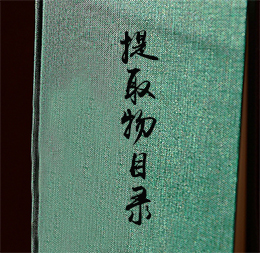 提取物目录